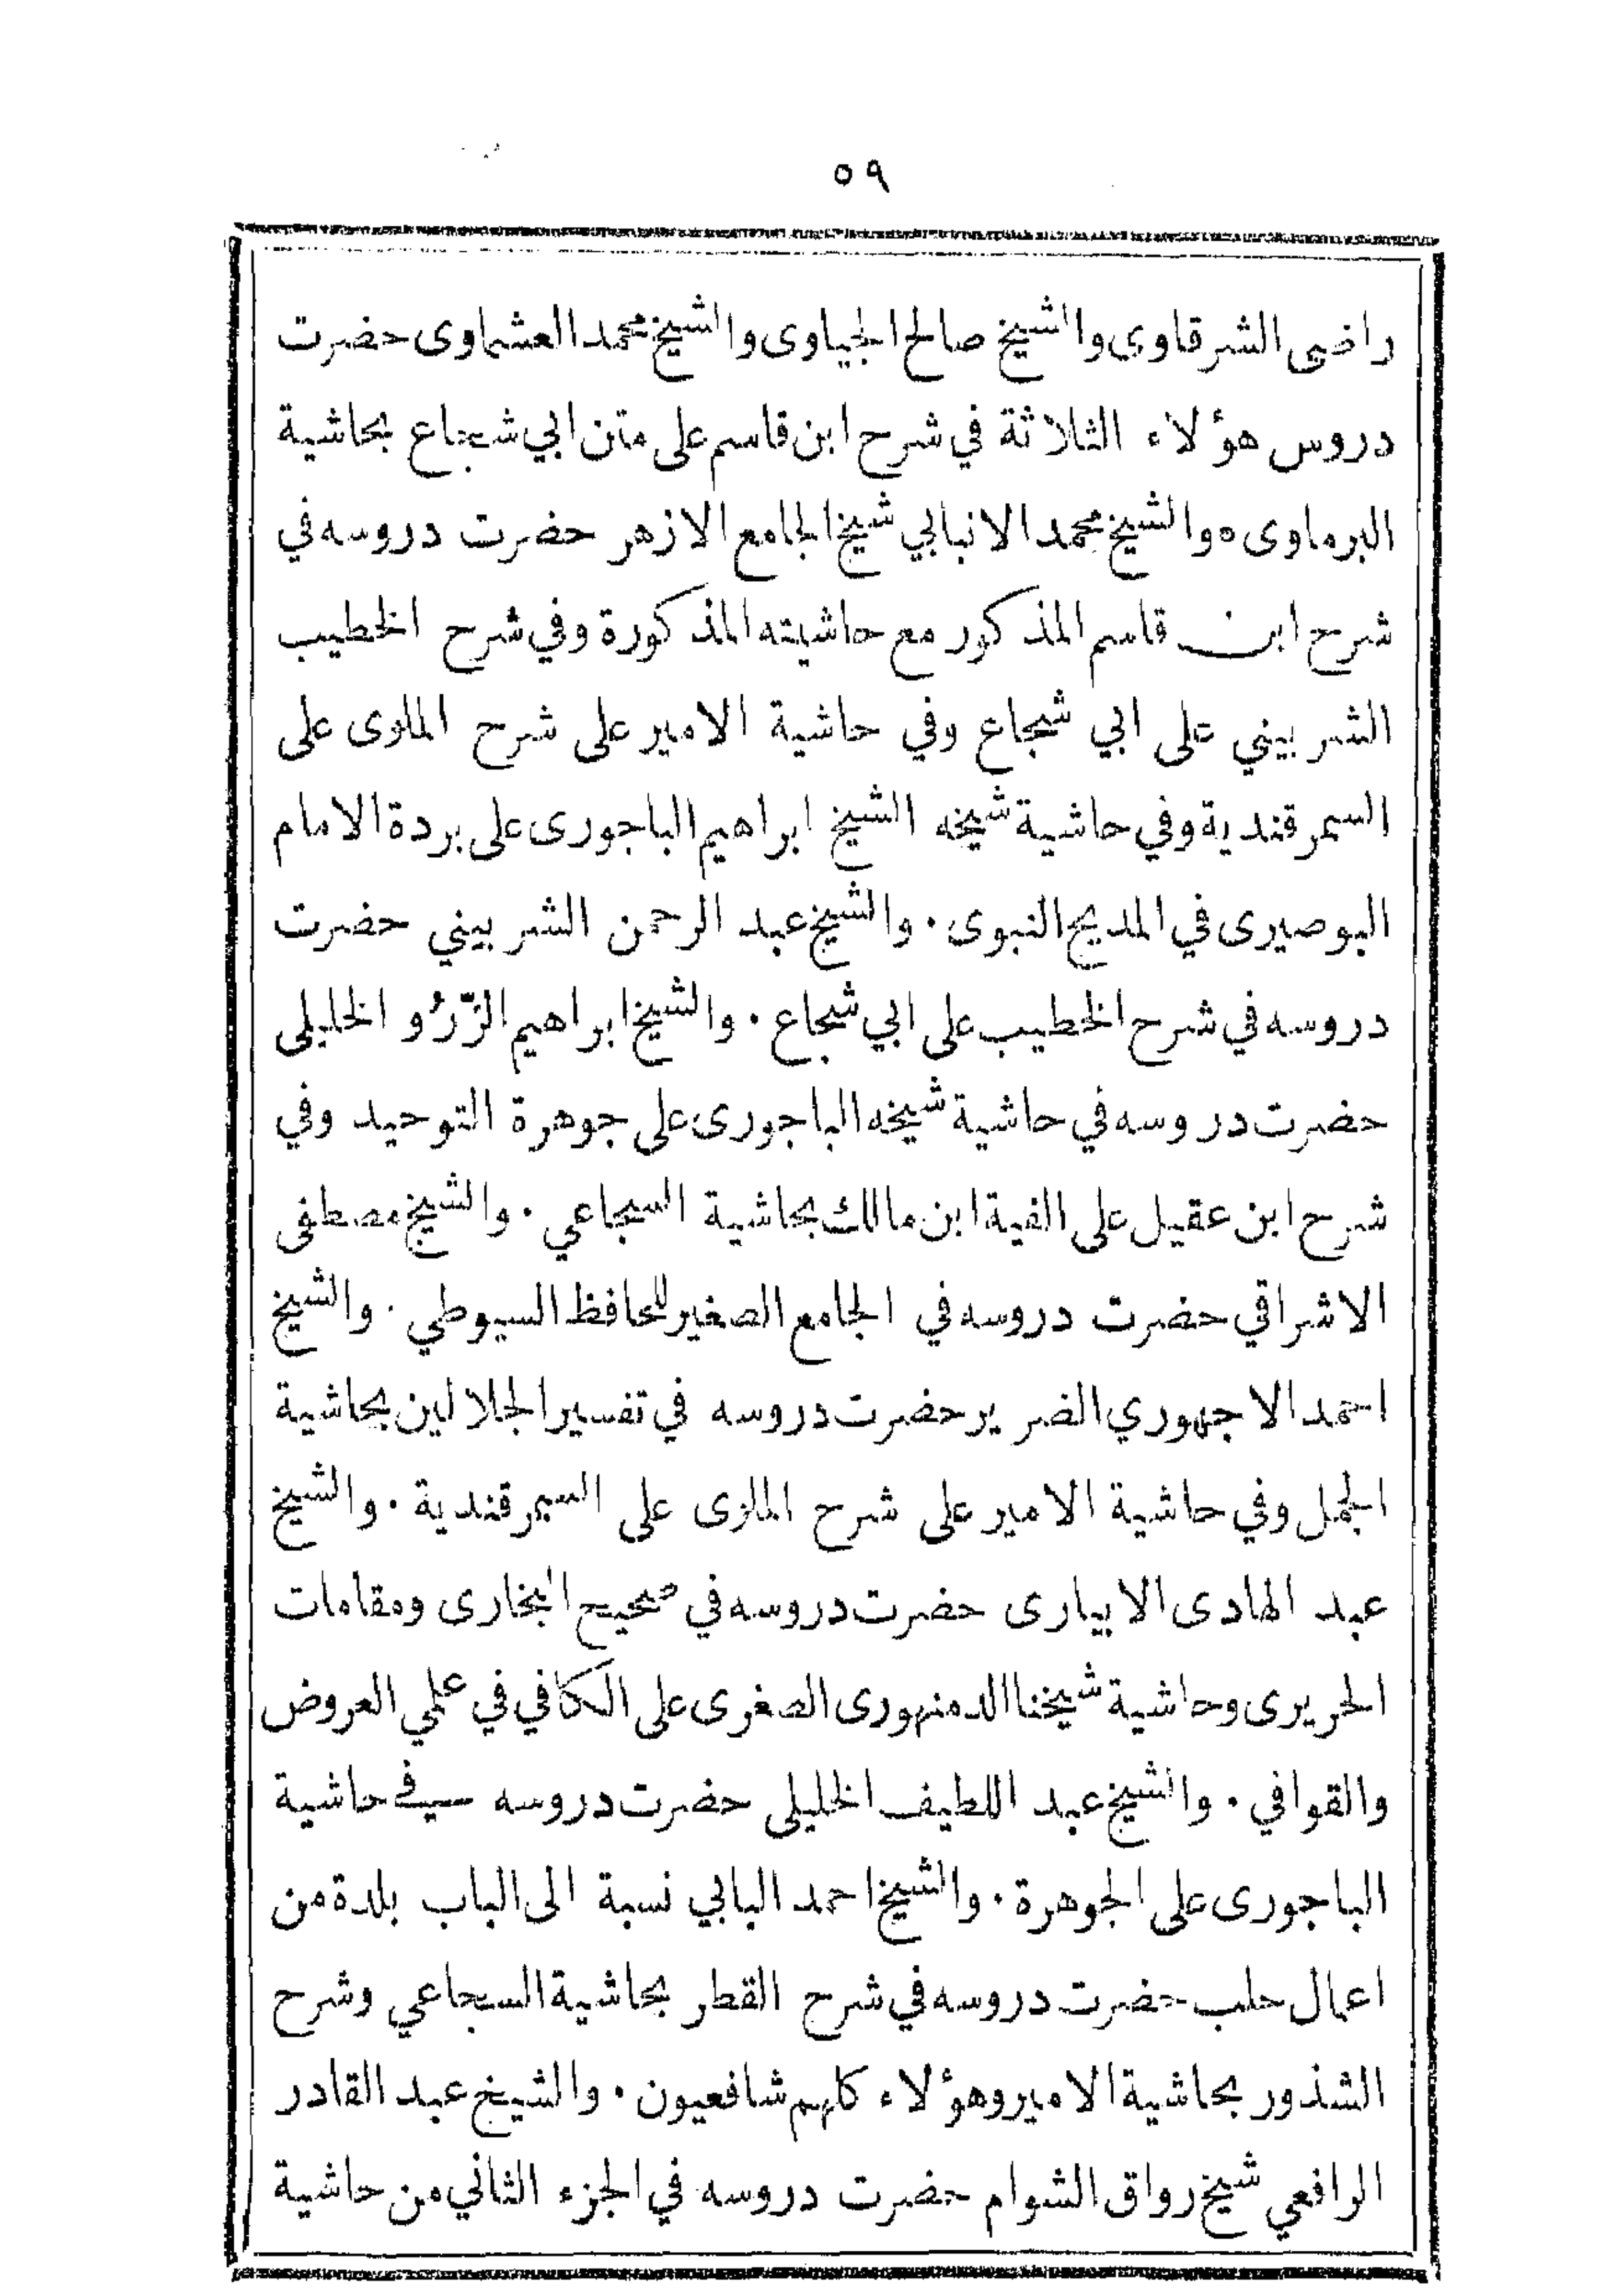 ٥٩
راضي الشرقاوى والشيخ صالح الجياوى والشيخ محمد العشماوى حضرت
دروس هؤلاء الثلاثة في شرح ابن قاسم على متن ابي شجاع بحاشية
البرماوى ٥ والشيخ محمد الانبابي شيخ الجامع الازهر حضرت دروسه في
شرح ابن قاسم المذكور مع حاشيته المذكورة وفي شرح الخطيب
الشربيني على ابي شجاع وفي حاشية الامير على شرح الملوى على
السمرقندية وفي حاشية شيخه الشيخ ابراهيم الباجورى على بردة الامام
البوصيرى في المديح النبوى ٠ والشيخ عبد الرحمن الشربيني حضرت
دروسه في شرح الخطيب على ابي شجاع ٠ والشيخ ابراهيم الزّرُو الخليلى
حضرت دروسه في حاشية شيخه الباجورى على جوهرة التوحيد وفي
شرح ابن عقيل على الفية ابن مالك بحاشية السجاعي ٠ والشيخ مصطفى
الاشراقي حضرت دروسه في الجامع الصغير للحافظ السيوطي ٠ والشيخ
احمد الاجهوري الضرير حضرت دروسه في تفسير الجلالين بحاشية
الجمل وفي حاشية الامير على شرح الملوى على السمرقندية ٠ والشيخ
عبد الهادى الابيارى حضرت دروسه في صحيح البخارى ومقامات
الحريرى وحاشية شيخنا الدمنهورى الصغرى على الكافي في علمي العروض
والقوافي ٠ والشيخ عبد اللطيف الخليلى حضرت دروسه في حاشية
الباجورى على الجوهرة ٠ والشيخ احمد البابي نسبة الى الباب بلدة من
اعمال حلب حضرت دروسه في شرح القطر بحاشية السجاعي وشرح
الشذور بحاشية الامير وهؤلاء كلهم شافعيون ٠ والشيخ عبد القادر
الرافعي شيخ رواق الشوام حضرت دروسه في الجزء الثاني من حاشية